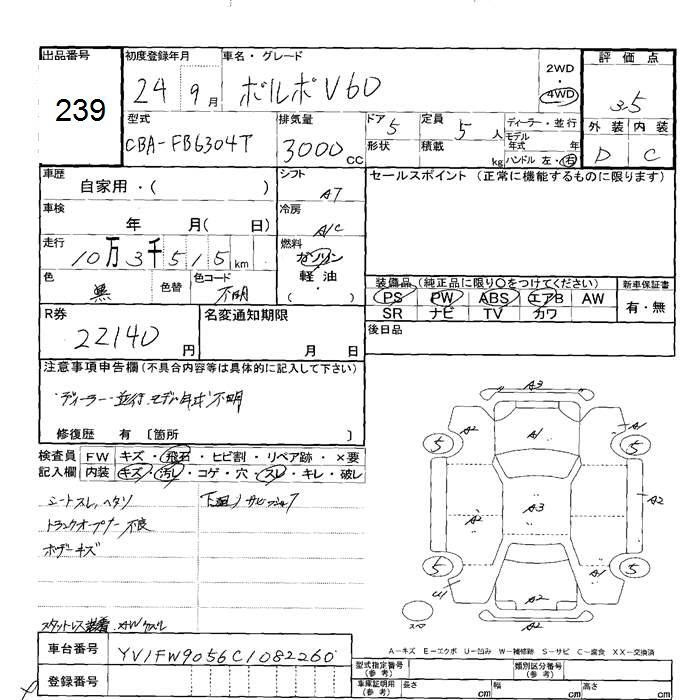 出品番号 初度登録年月 車名・グレード 評価点
239 24 9月 ボルボV60 2WD・4WD 3.5
型式 排気量 ドア 5 定員 5人 ディーラー・並行 外装 内装
CBA-FB6304T 3000cc 形状 積載 kg モデル年式 年 ハンドル 左・右 D C
車歴 シフト セールスポイント(正常に機能するものに限ります)
自家用・( ) AT
車検 冷房
年 月( 日) A/C
走行 燃料
10万3千515km ガソリン
色 色替 色コード 軽油
黒 不明 ・( )
装備品(純正品に限り○をつけてください) 新車保証書
PS PW ABS エアB AW 有・無
SR ナビ TV カワ
R券 名変通知期限 後日品
22140円 月 日
注意事項申告欄(不具合内容等は具体的に記入して下さい)
ディーラー・並行、モデル年式不明
修復歴 有 〔箇所 〕
検査員 FW キズ・飛石・ヒビ割・リペア跡・×要
記入欄 内装 キズ・汚レ・コゲ・穴・スレ・キレ・破レ
シートスレ、ヘタリ 下廻りサビ
トランクオープナー不良
ボデーキズ
スタットレス装着
A3
A2 A1 A1
5 5
A2 A3 A2
5 5
U1 A1
A2 A2
スペ
A-キズ E-エクボ U-凹み W-補修跡 S-サビ C-腐食 XX-交換済
車台番号 YV1FW9056C1082260
登録番号
型式指定番号(参考) 類別区分番号(参考)
車庫証明用(参考) 長さ cm 幅 cm 高さ cm